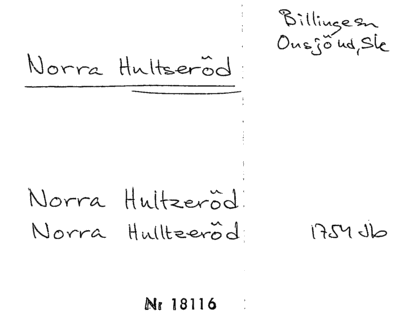 Billinge sn
Onsjö hd, Sk
Norra Hultseröd
Norra Hultzeröd
Norra Hulltzeröd
1754 Jb
Nr 18116